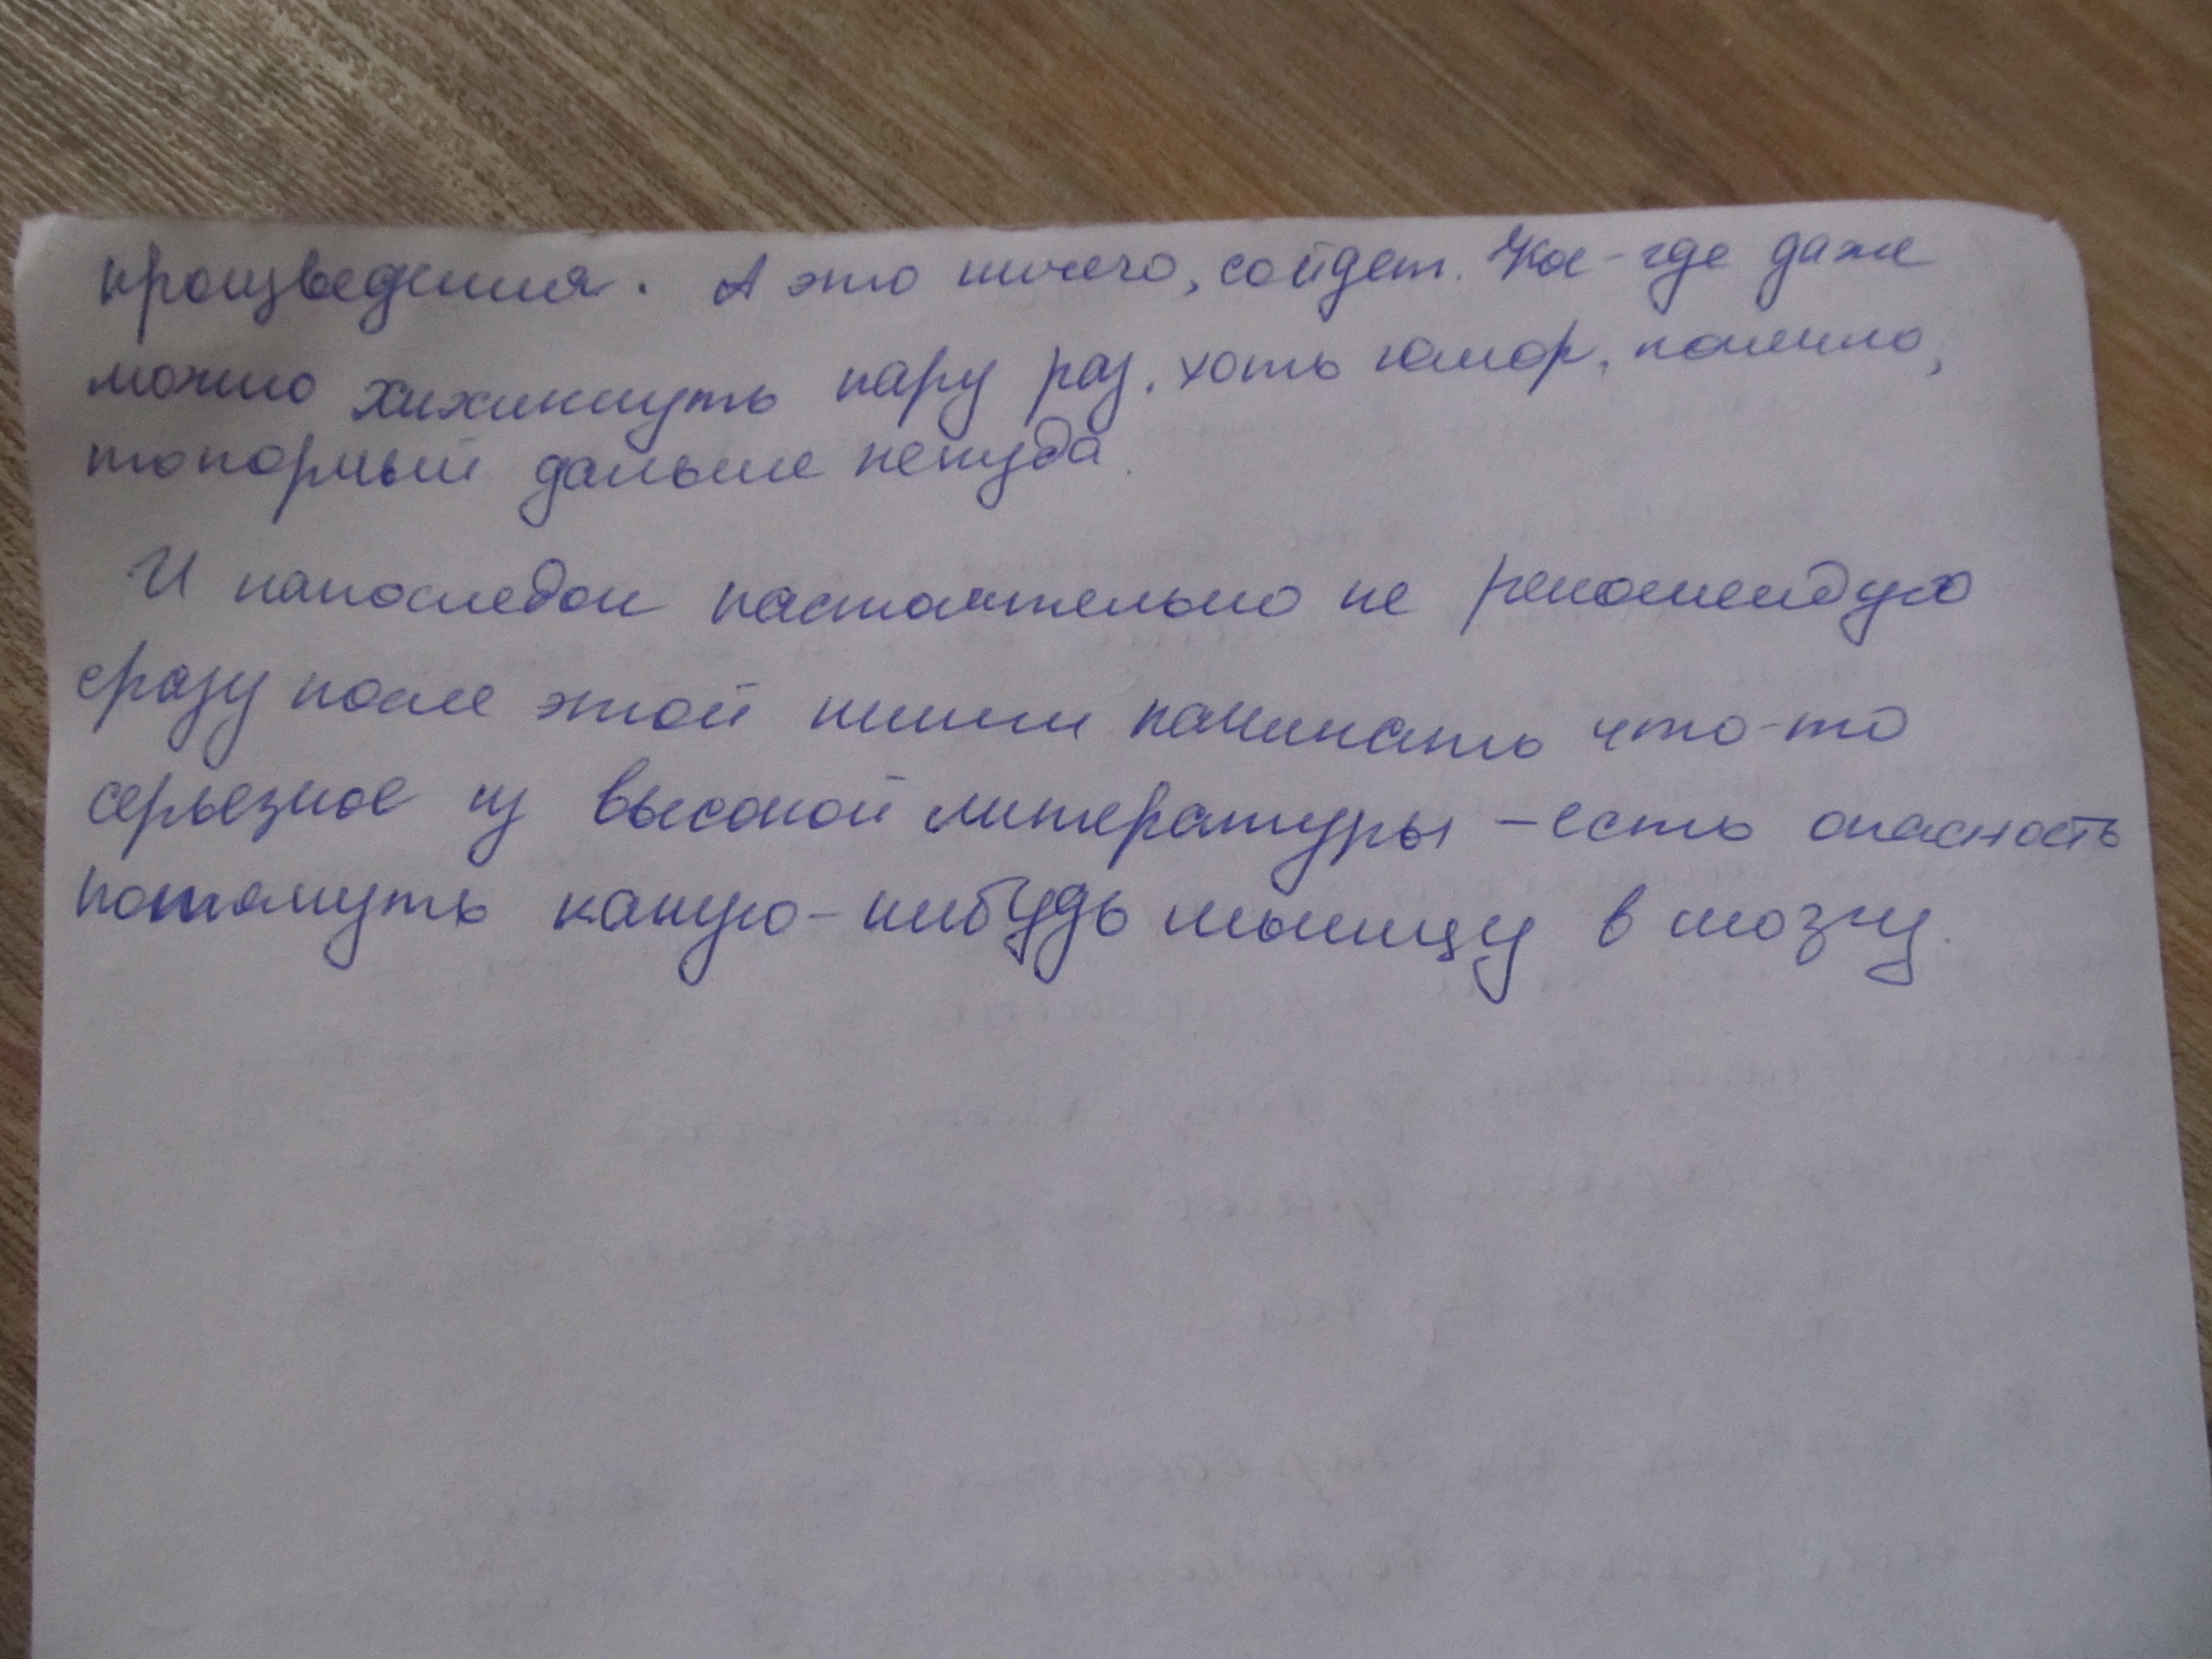 произведения. А это ничего, сойдет. Кое-где даже
можно хихикнуть пару раз, хоть юмор, конечно,
топорный дальше некуда.
И напоследок настоятельно не рекомендую
сразу после этой книги начинать что-то
серьезное из высокой литературы - есть опасность
потянуть какую-нибудь мышцу в мозгу.